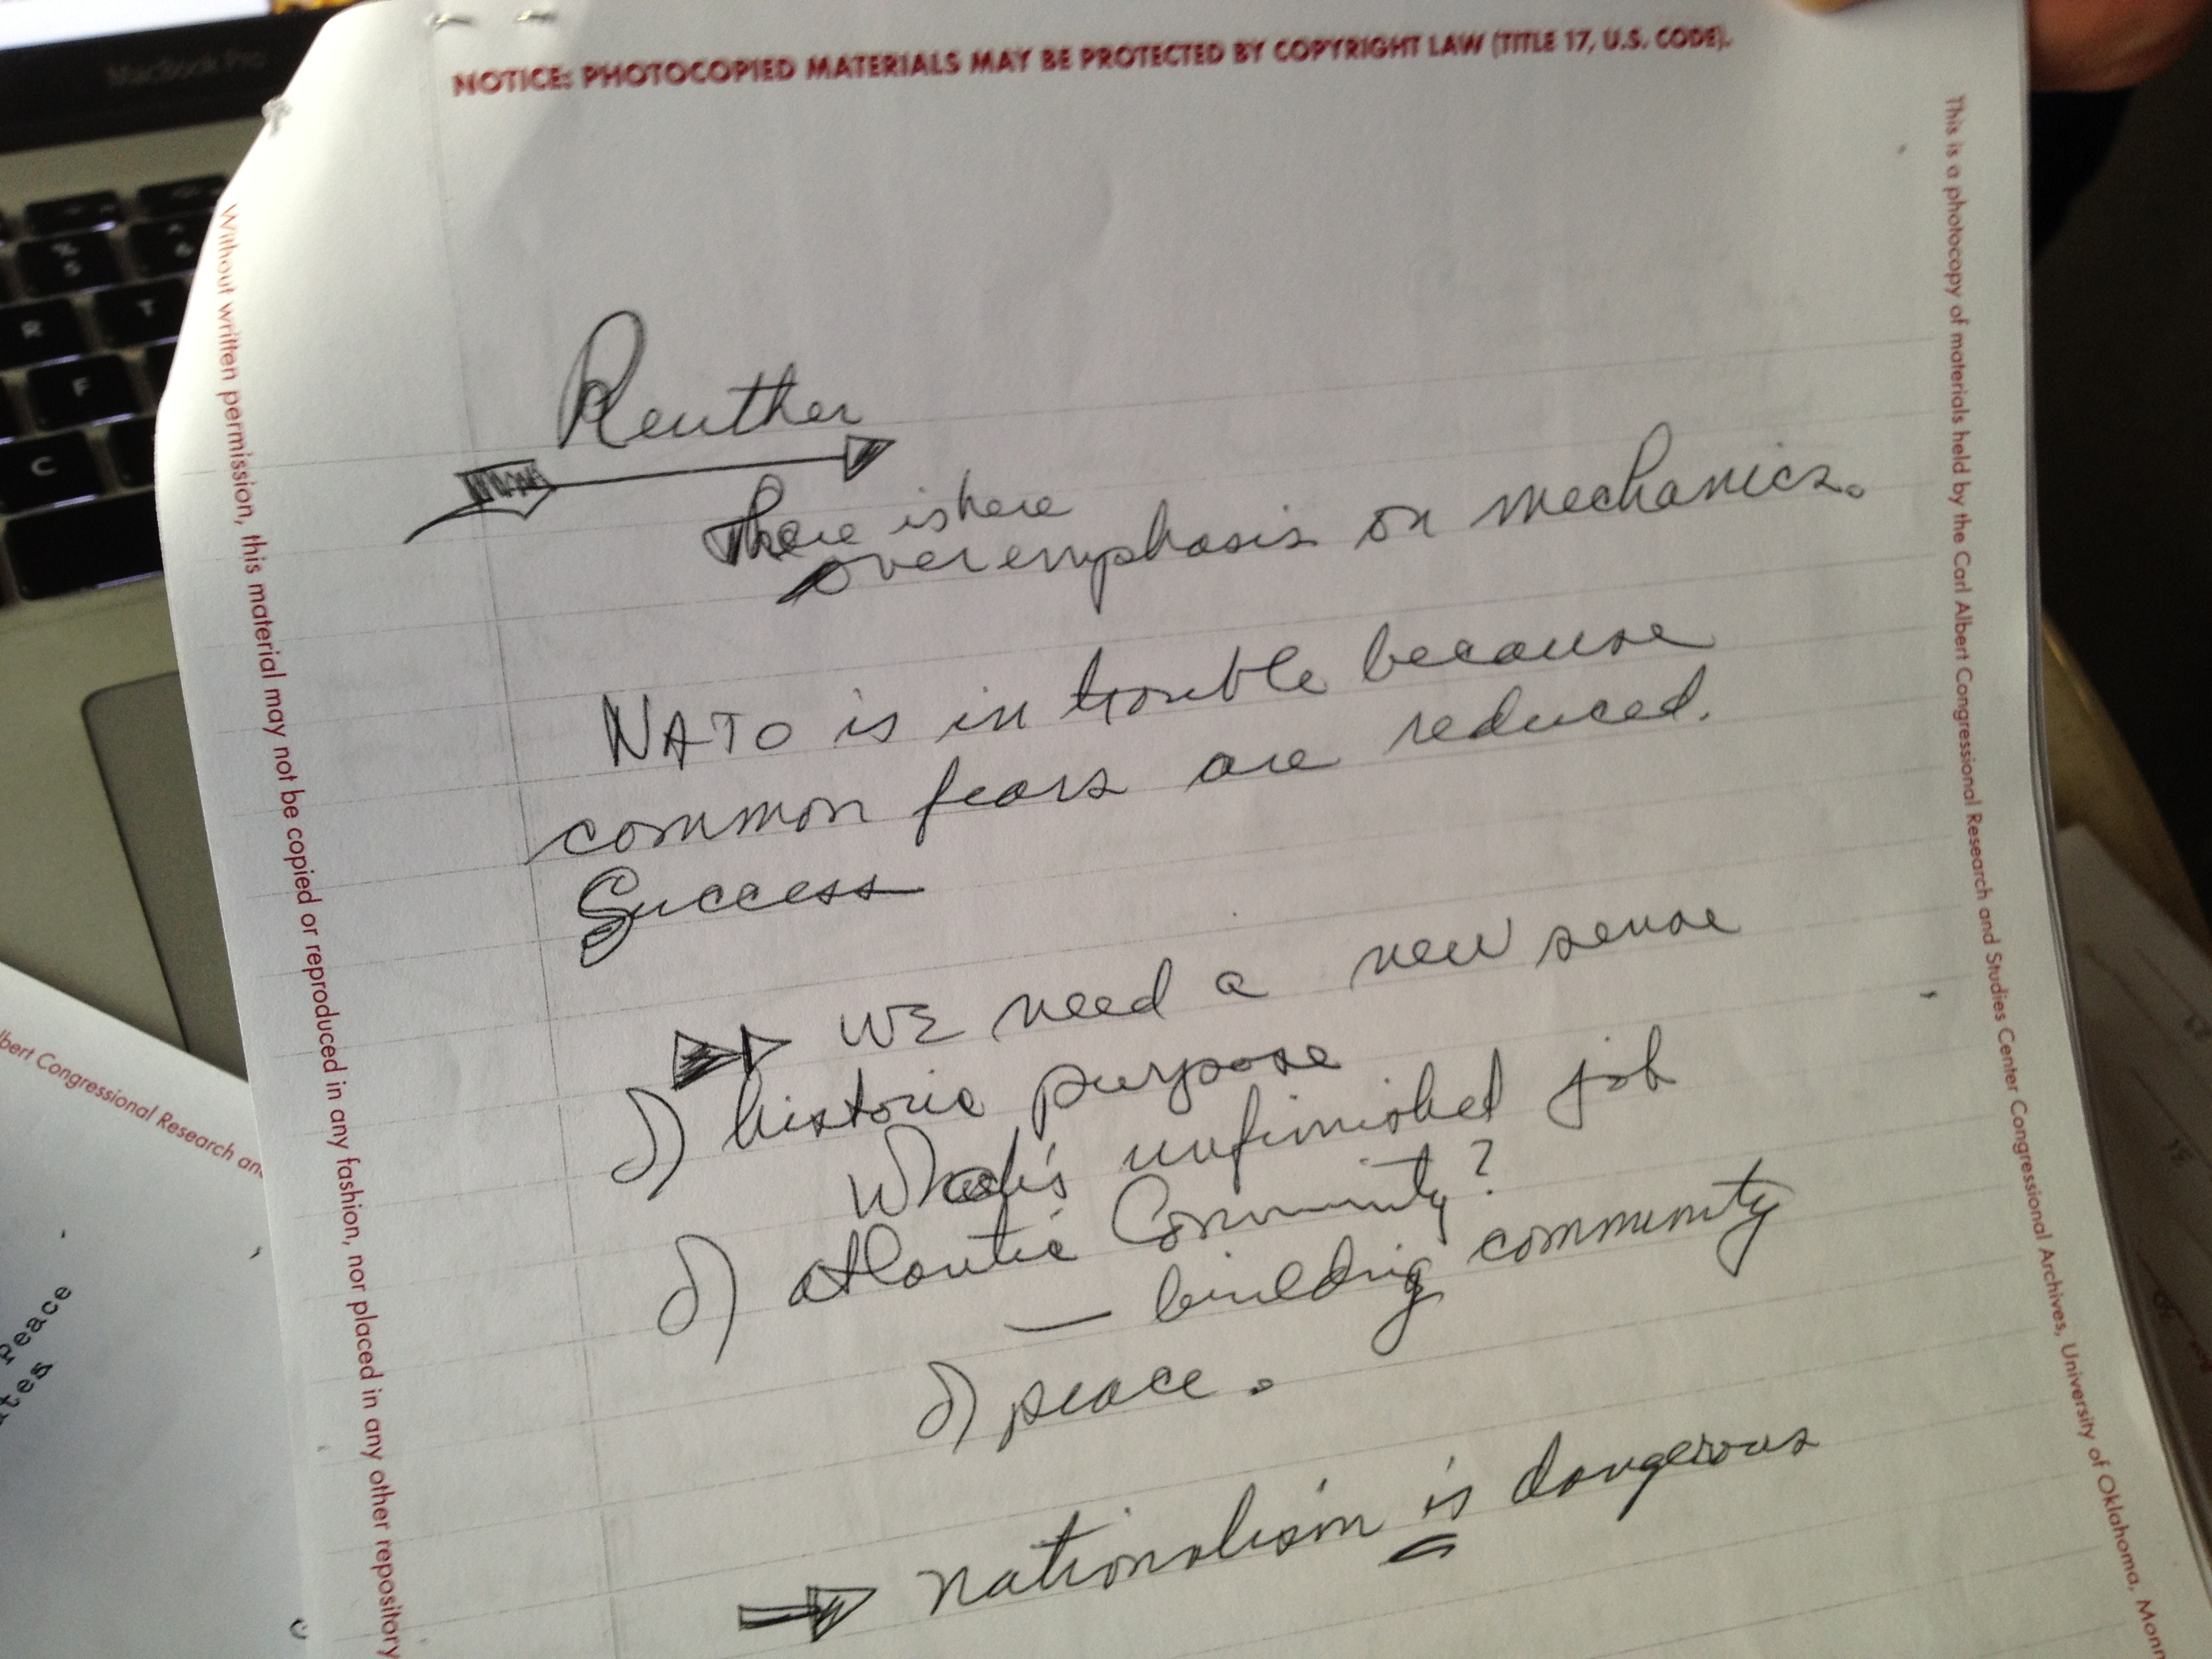 MacBook Pro
NOTICE: PHOTOCOPIED MATERIALS MAY BE PROTECTED BY COPYRIGHT LAW (TITLE 17, U.S. CODE).
Reuther
There is here
overemphasis on mechanics.
NATO is in trouble because
common fears are reduced.
Success
WE need a new sense
historic purpose
What's unfinished job
atlantic Community?
— building community
peace.
nationalism is dangerous
Without written permission, this material may not be copied or reproduced in any fashion, nor placed in any other repository
This is a photocopy of materials held by the Carl Albert Congressional Research and Studies Center Congressional Archives, University of Oklahoma,
Congressional Research
Peace
R
T
F
C